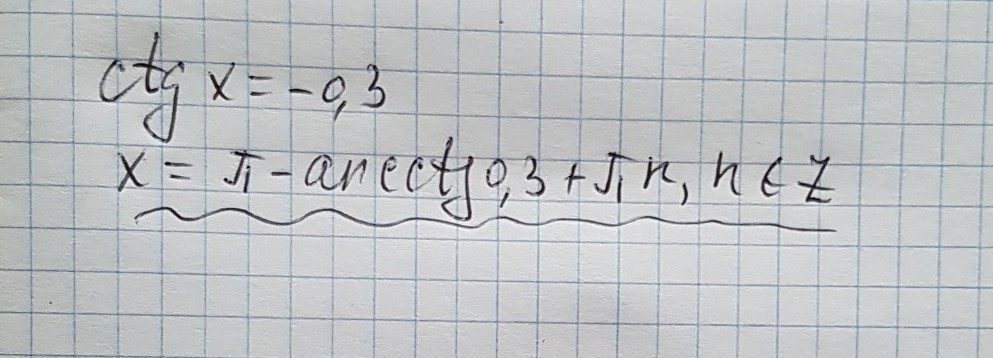 ctg x = -0,3
x = π - arcctg 0,3 + πn, n ∈ Z